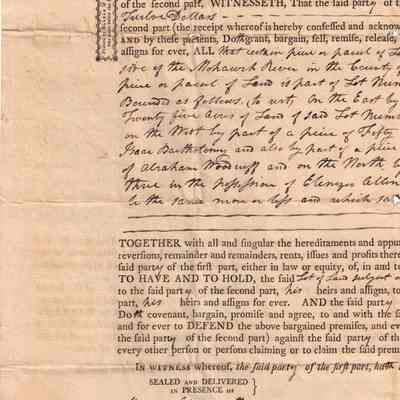 of the second part, WITNESSETH, That the said party of t
Twelve Dollars
second part (the receipt whereof is hereby confessed and acknow
AND by these presents, Doth grant, bargain, sell, remise, release,
assigns for ever, ALL that certain piece or parcel of L
side of the Mohawk River in the County of
piece or parcel of Land is part of Lot Num
Bounded as follows. (to wit) On the East by
Twenty five Acres of Land of said Lot Num
on the West by part of a piece of Fifty
Isaac Bartholomew and also by part of a piece
of Abraham Woodruff and on the North by
three in the possession of Ebenezer Allen
be the same more or less and which sa
TOGETHER with all and singular the hereditaments and appu
reversions, remainder and remainders, rents, issues and profits there
said party of the first part, either in law or equity, of, in and to
TO HAVE AND TO HOLD, the said Lot of Land subject a
to the said party of the second part, his heirs and assigns, to
part, his heirs and assigns for ever. AND the said party
Doth covenant, bargain, promise and agree, to and with the sa
and for ever to DEFEND the above bargained premises, and eve
the said party of the second part) against the said party of th
every other person or persons claiming or to claim the said prem
IN WITNESS whereof, the said party of the first part, hath
SEALED AND DELIVERED
IN PRESENCE OF